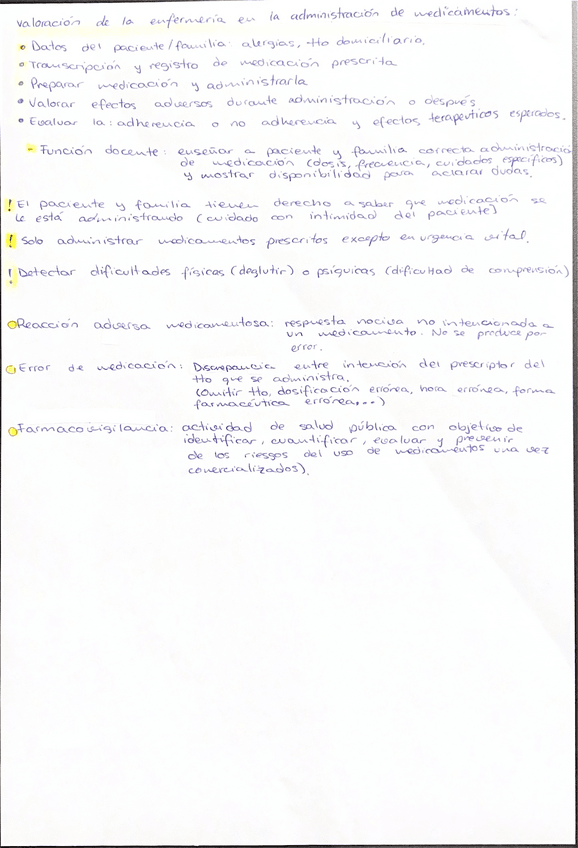 valoración de la enfermería en la administración de medicamentos:
• Datos del paciente/familia: alergias, tto domiciliario.
• Transcripción y registro de medicación prescrita
• Preparar medicación y administrarla
• Valorar efectos adversos durante administración o después
• Evaluar la: adherencia o no adherencia y efectos terapéuticos esperados.
- Función docente: enseñar a paciente y familia correcta administración
de medicación (dosis, frecuencia, cuidados específicos)
y mostrar disponibilidad para aclarar dudas.
! El paciente y familia tienen derecho a saber que medicación se
le está administrando (cuidado con intimidad del paciente)
! Solo administrar medicamentos prescritos excepto en urgencia vital.
! Detectar dificultades físicas (deglutir) o psíquicas (dificultad de comprensión)
Reacción adversa medicamentosa: respuesta nociva no intencionada a
un medicamento. No se produce por
error.
Error de medicación: Discrepancia entre intención del prescriptor del
tto que se administra.
(Omitir tto, dosificación errónea, hora errónea, forma
farmacéutica errónea,...)
Farmacovigilancia: actividad de salud pública con objetivo de
identificar, cuantificar, evaluar y prevenir
de los riesgos del uso de medicamentos una vez
comercializados).